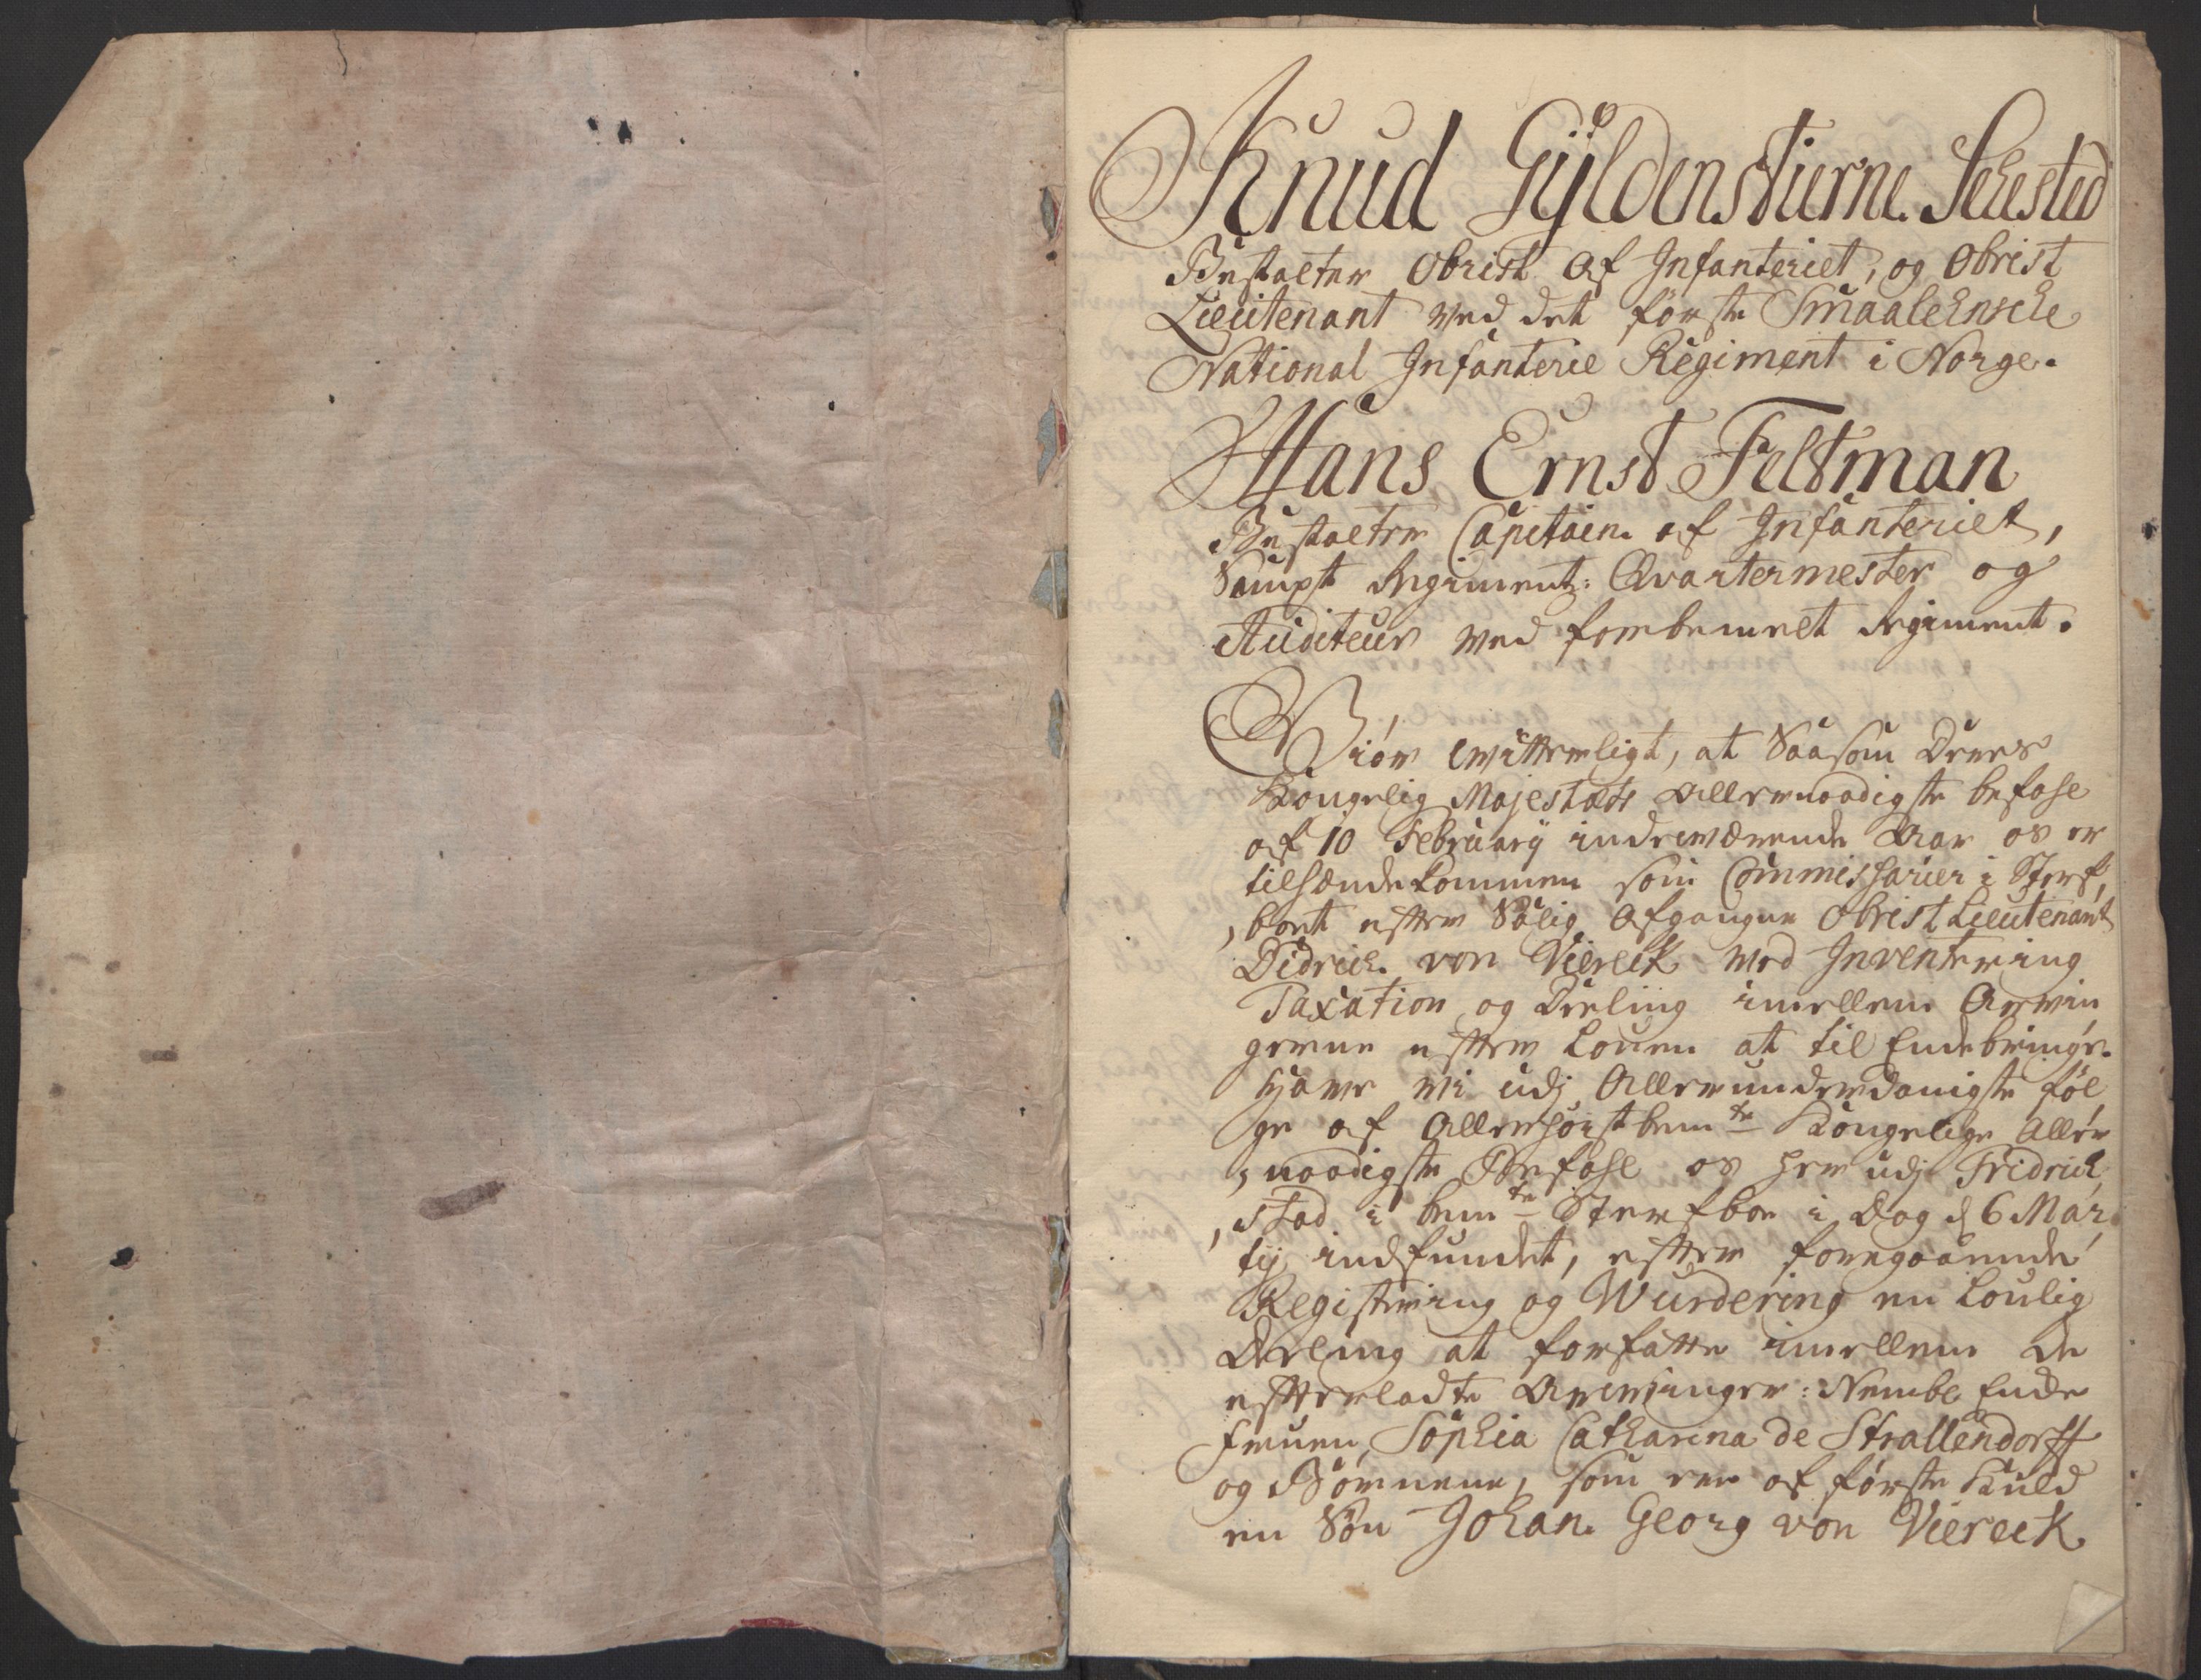 Knud Gÿldenstierne Sehested
Bestalter Obrist Af Infanteriet, og Obrist
Lieutenant ved det første Smaalehnsche
National Infanterie Regiment i Norge.
Hans Ernst Feltman
Bestalter Capitain af Infanteriet,
Sampt Regiments: Qvartermester og
Auditeur ved forbemelt Regiment.
Giør Witterligt, at Saasom Deres
Kongelig Majestæts Allernaadigste befahl
af 10 Februarÿ indeværende Aar os er
tilhændekommen som Commissarier i Sterf,
,boet efter Salig Afgangne Obrist Lieutenant
Didrich von Viereck med Inventering
Taxation og Deeling imellem Arwin
gerne efter Louen at til Endebringe.
Hjawe wi udj Allerunderdanigste føl
ge af Allerhøistbem:te Kongelige Aller
,naadigste Befahl os her udj Fridrich,
,stad i bem:te Sterfboe i Dag d 6 Mar,
tij indfundet, efter foregaaende
Registering og Wurdering en Loulig
Deeling at forfatte imellem de
efterladte Arwinger: Nembl Encke
Fruen Sophia Catharina de Strallendorff
og Børnene, som ere af første Kuld
en Søn Johan Georg von Viereck